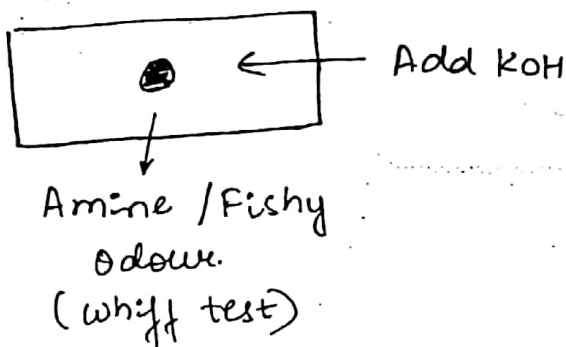 Add KOH
Amine / Fishy
odour.
(whiff test)